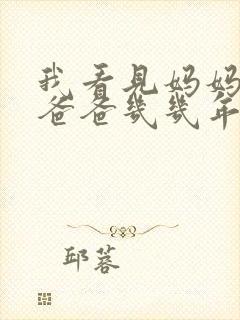 我看见妈妈
爸爸几几年
邱蓉